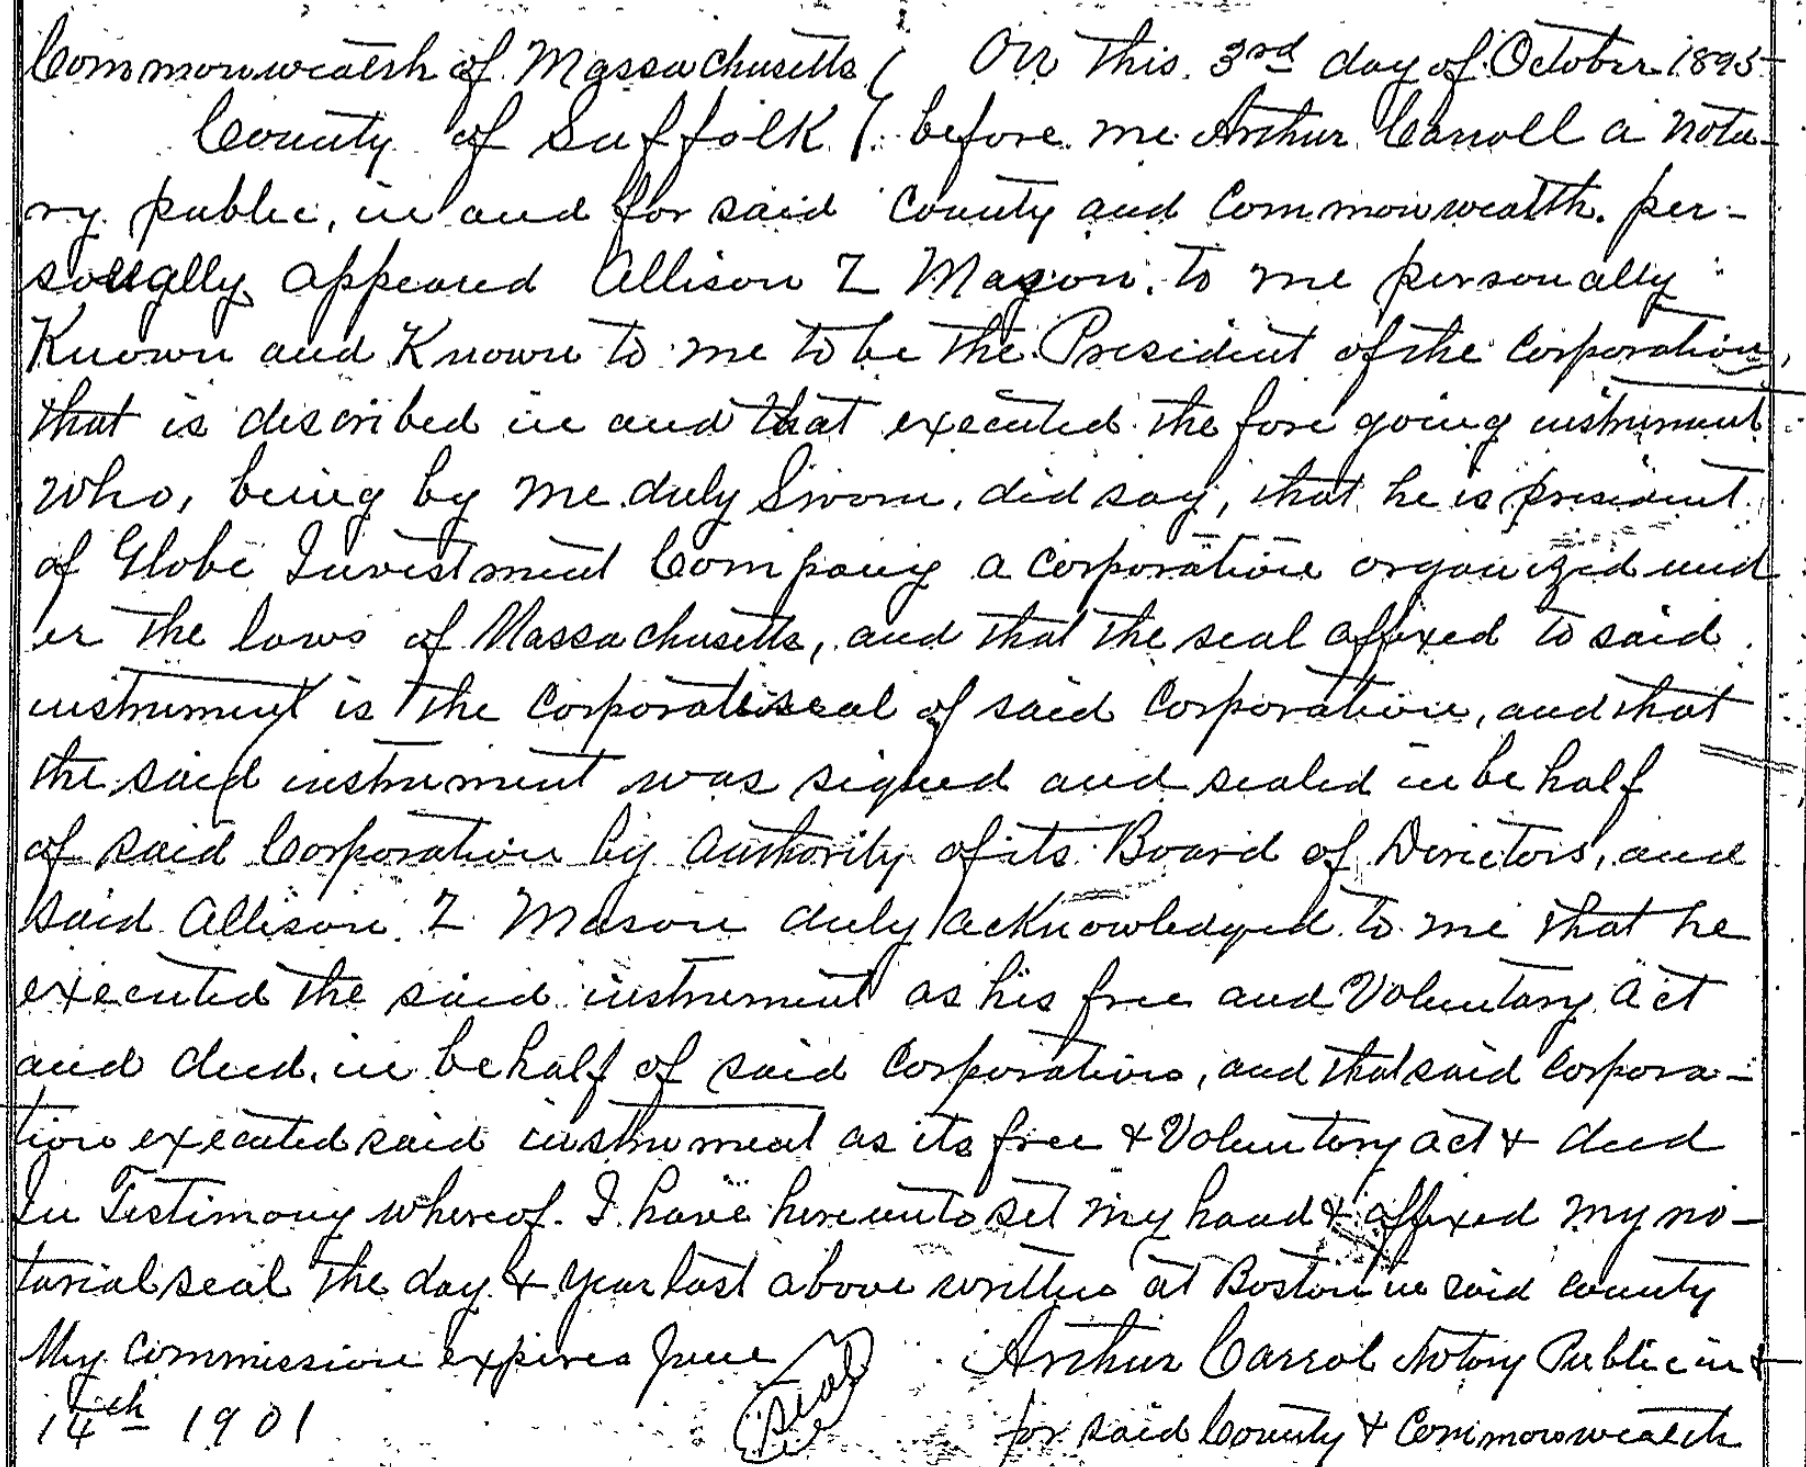 Commonwealth of Massachusetts ( On this 3rd day of October 1895
County of Suffolk ( before me Arthur Carroll a nota-
ry public, in and for said County and Commonwealth. per-
sonally appeared Allison Z Mason. to me personally
Known and Known to me to be the President of the Corporation,
that is described in and that executed the fore going instrument
who, being by me duly Sworn, did say, that he is president
of Globe Investment Company a corporation organized und
er the laws of Massachusetts, and that the seal affixed to said
instrument is the Corporate seal of said Corporation, and that
the said instrument was signed and sealed in behalf
of said Corporation by authority of its Board of Directors, and
said Allison Z Mason duly acknowledged to me that he
executed the said instrument as his free and Voluntary act
and deed, in behalf of said Corporation, and that said Corpora-
tion executed said instrument as its free & Voluntary act & deed
In Testimony whereof. I have hereunto set my hand & affixed my no-
tarial seal the day & year last above written at Boston in said County
My Commission expires June (Seal) Arthur Carrol Notary Public in &
14th 1901 for said County & Commonwealth